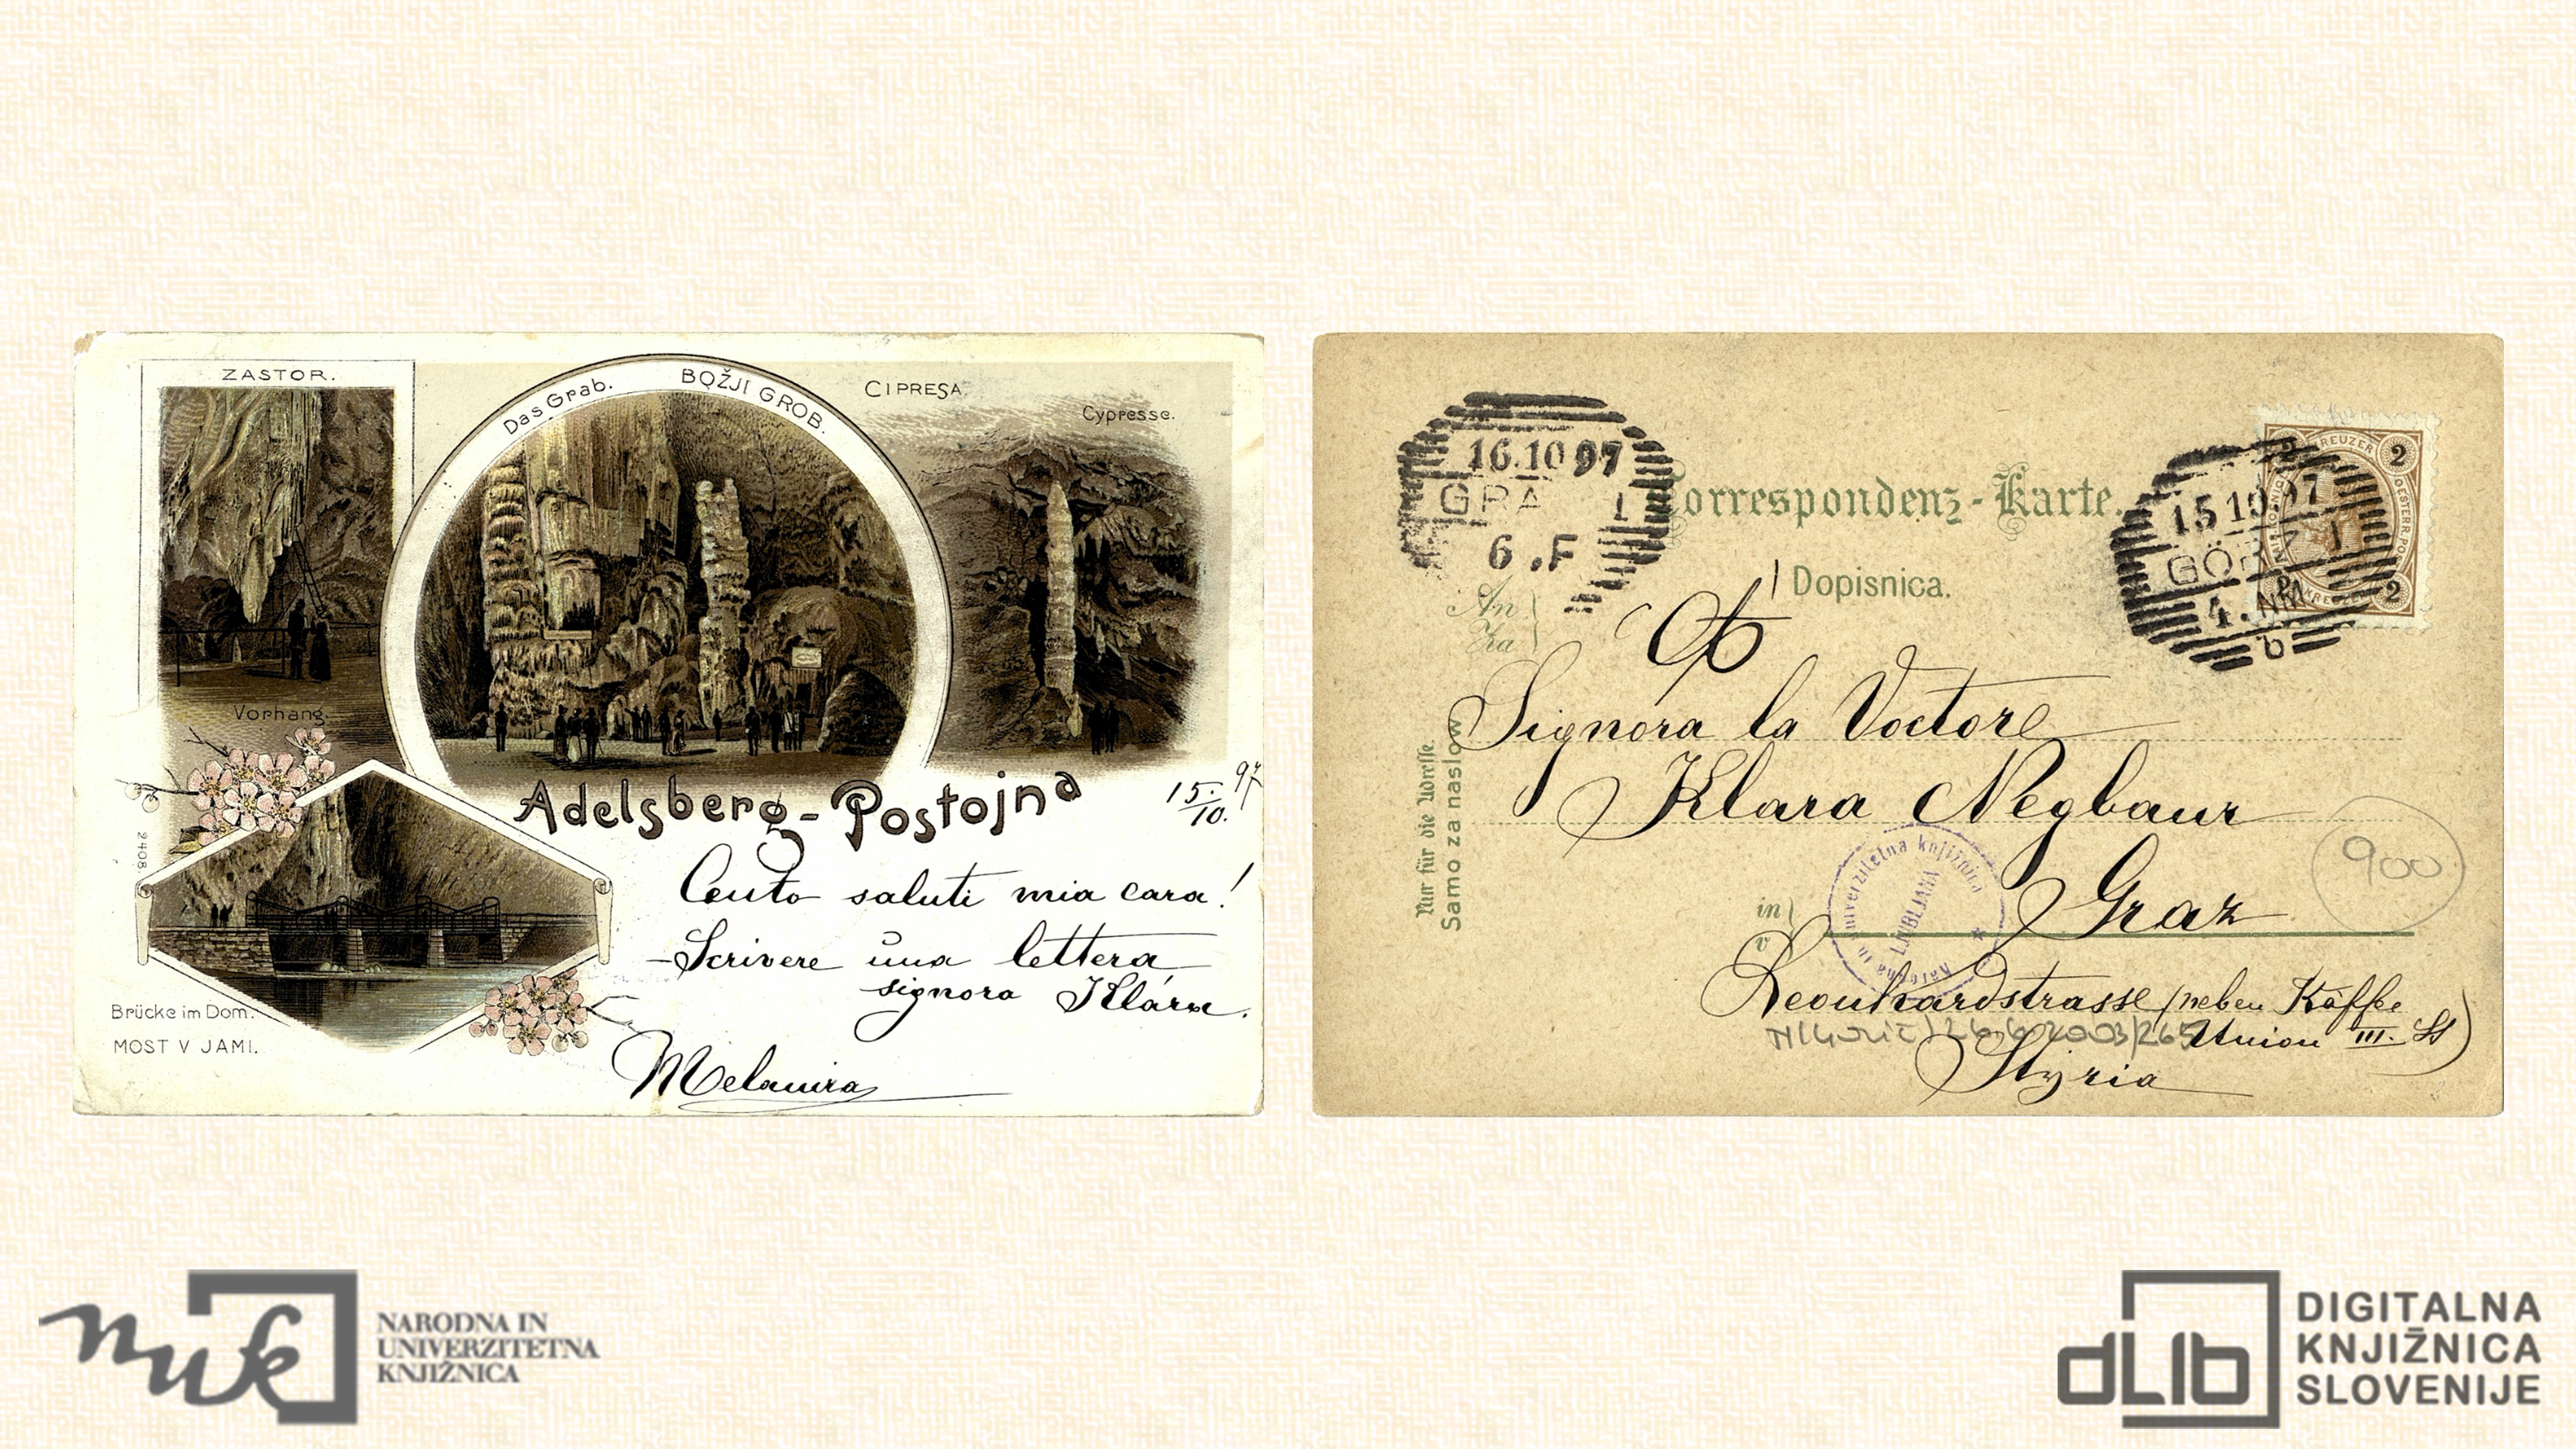 ZASTOR.
Das Grab. BOŽJI GROB.
CIPRESA.
Cypresse.
Vorhang.
Adelsberg-Postojna
15./10. 97
2408
Cento saluti mia cara!
Scrivere una lettera
signora Klára.
Brücke im Dom.
MOST V JAMI.
16.10 97
GRA 1
6.F
Correspondenz-Karte.
Dopisnica.
15 10 97
GÖRZ 1
4. NM
b
KREUZER
2
2
An
Za
Signora la Doctore
Klara Negbaur
Nur für die Adresse.
Samo za naslow
Graz
900
in
v
univerzitetna knjižnica
LJUBLJANA
Leonhardstrasse (neben Kaffee
Union III. St)
Styria
NARODNA IN
UNIVERZITETNA
KNJIŽNICA
nuk
dLib
DIGITALNA
KNJIŽNICA
SLOVENIJE